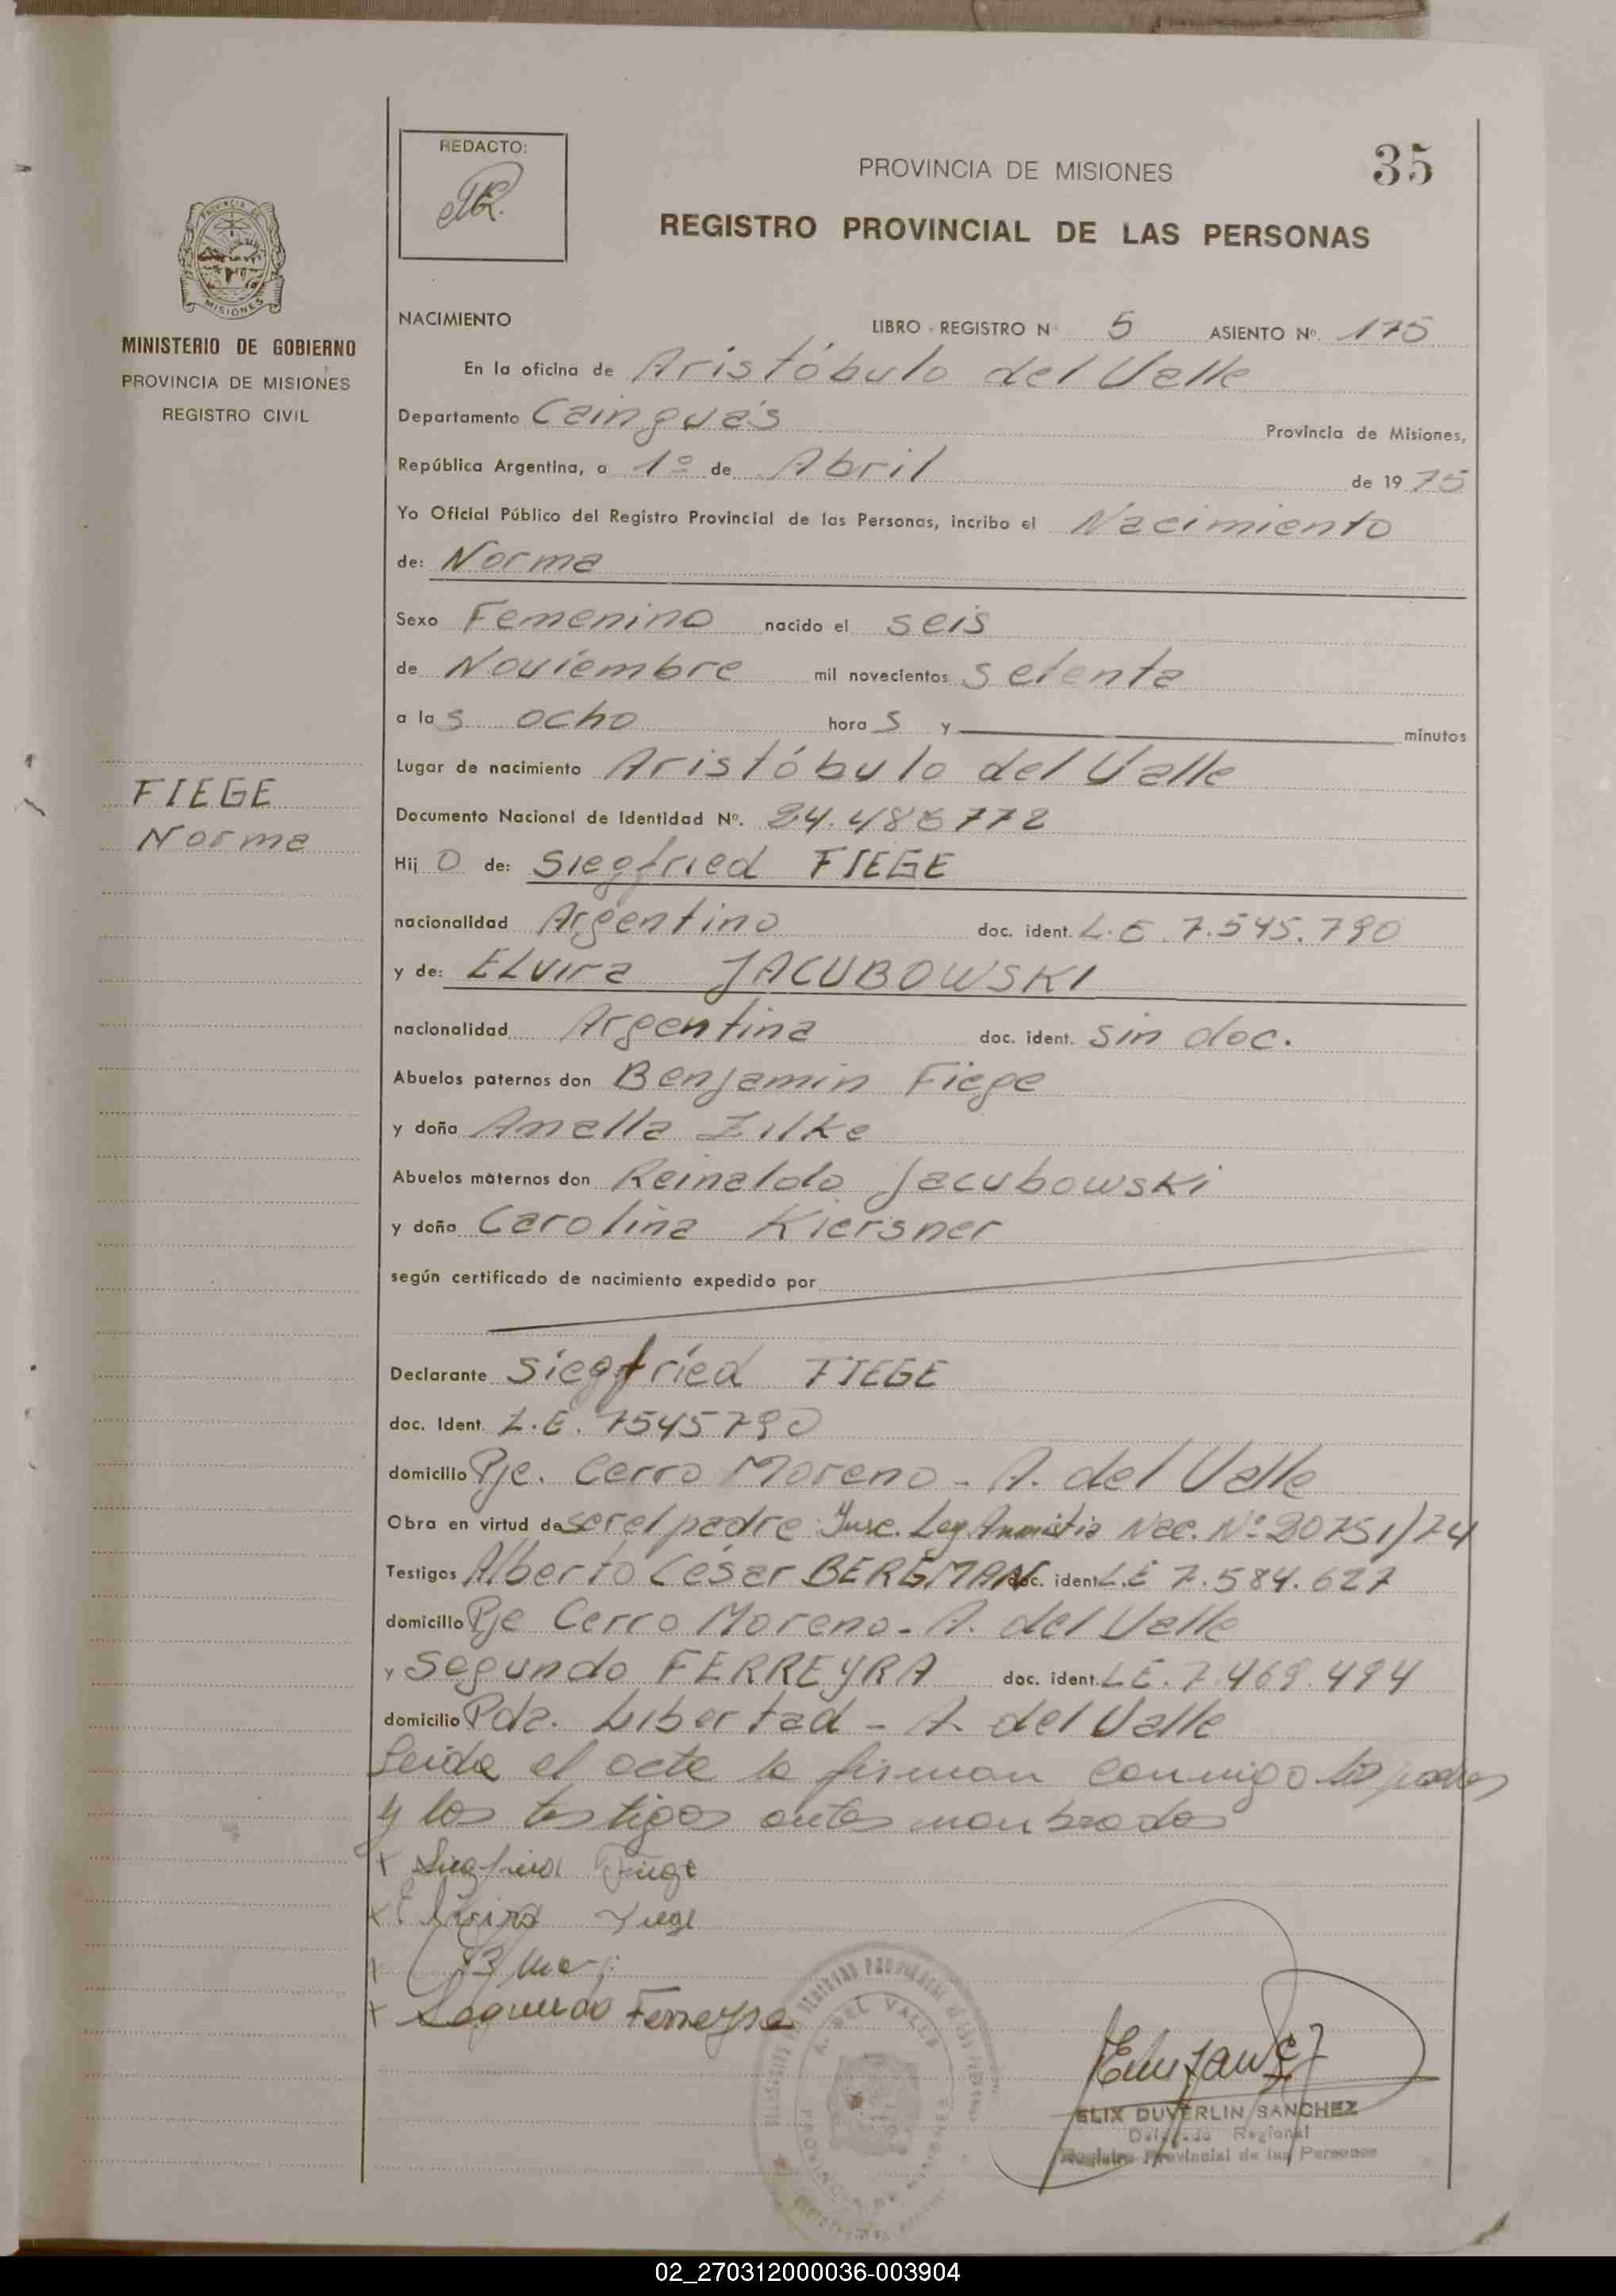 35
REDACTO:
PROVINCIA DE MISIONES
REGISTRO PROVINCIAL DE LAS PERSONAS
PROVINCIA DE
MISIONES
MINISTERIO DE GOBIERNO
PROVINCIA DE MISIONES
REGISTRO CIVIL
NACIMIENTO LIBRO - REGISTRO Nº 5 ASIENTO Nº. 175
En la oficina de Aristóbulo del Valle
Departamento Cainguás Provincia de Misiones,
República Argentina, a 1º de Abril de 1975
Yo Oficial Público del Registro Provincial de las Personas, incribo el Nacimiento
de: Norma
Sexo Femenino nacido el seis
de Noviembre mil novecientos setenta
a las ocho horas y minutos
Lugar de nacimiento Aristóbulo del Valle
FIEGE
Norma
Documento Nacional de Identidad Nº. 24.486772
Hij o de: Siegfried FIEGE
nacionalidad Argentino doc. ident. L.E. 7.545.790
y de: ELvira JACUBOWSKI
nacionalidad Argentina doc. ident. sin doc.
Abuelos paternos don Benjamin Fiege
y doña Amalia Zilke
Abuelos maternos don Reinaldo Jacubowski
y doña Carolina Kiersner
según certificado de nacimiento expedido por
Declarante Siegfried FIEGE
doc. Ident. L.E. 7545790
domicilio Pje. Cerro Moreno - A. del Valle
Obra en virtud de ser el padre Insc. Ley Amnistia Nac. Nº 20751/74
Testigos Alberto César BERGMAN doc. ident. L.E 7.584.627
domicilio Pje Cerro Moreno - A. del Valle
y Segundo FERREYRA doc. ident. LE. 7.469.494
domicilio Pda. Libertad - A. del Valle
Leida el acta la firman conmigo los padres
y los testigos antes nombrados
x Siegfried Fiege
x Elvira Fiege
x
x Segundo Ferreyra
A. DEL VALLE
PROVINCIA DE MISIONES
ELIX DUVERLIN SANCHEZ
Delegado Regional
Registro Provincial de las Personas
02_270312000036-003904